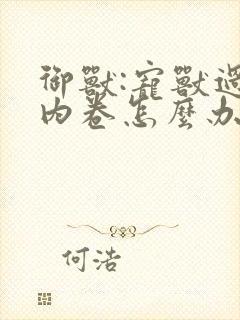 御獸:寵獸過
內卷怎麼办
何浩